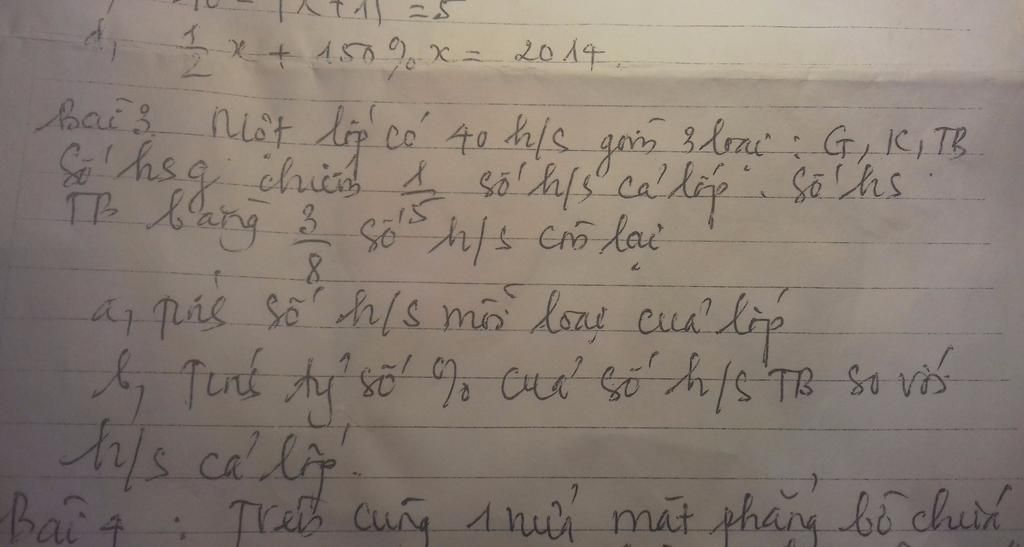 |x+1| = 5
d, 1/2 x + 150% x = 2014.
Bài 3. Một lớp có 40 h/s gồm 3 loại : G, K, TB
Số hsg chiếm 1/5 số h/s cả lớp. Số hs
TB bằng 3/8 số h/s còn lại
a, Tính số h/s mỗi loại của lớp
b, Tính tỷ số % của số h/s TB so với
h/s cả lớp.
Bài 4 : Trên cùng 1 nửa mặt phẳng bờ chứa